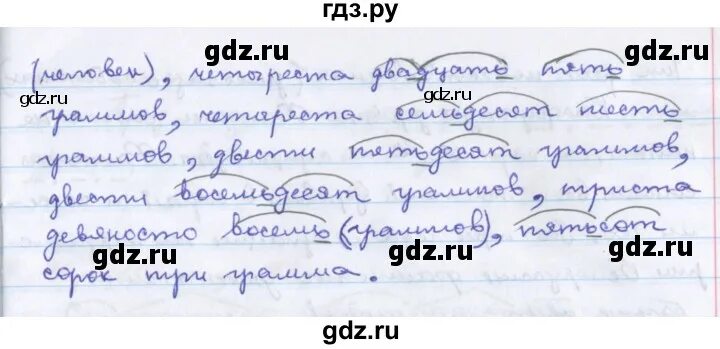 гдз.ру
(человек), четыреста двадцать пять
граммов, четыреста семьдесят шесть
граммов, двести пятьдесят граммов,
двести восемьдесят граммов, триста
девяносто восемь (граммов), пятьсот
сорок три грамма.
gdz.ru
gdz.ru
gdz.ru
gdz.ru
gdz.ru
gdz.ru
gdz.ru
gdz.ru
gdz.ru
gdz.ru